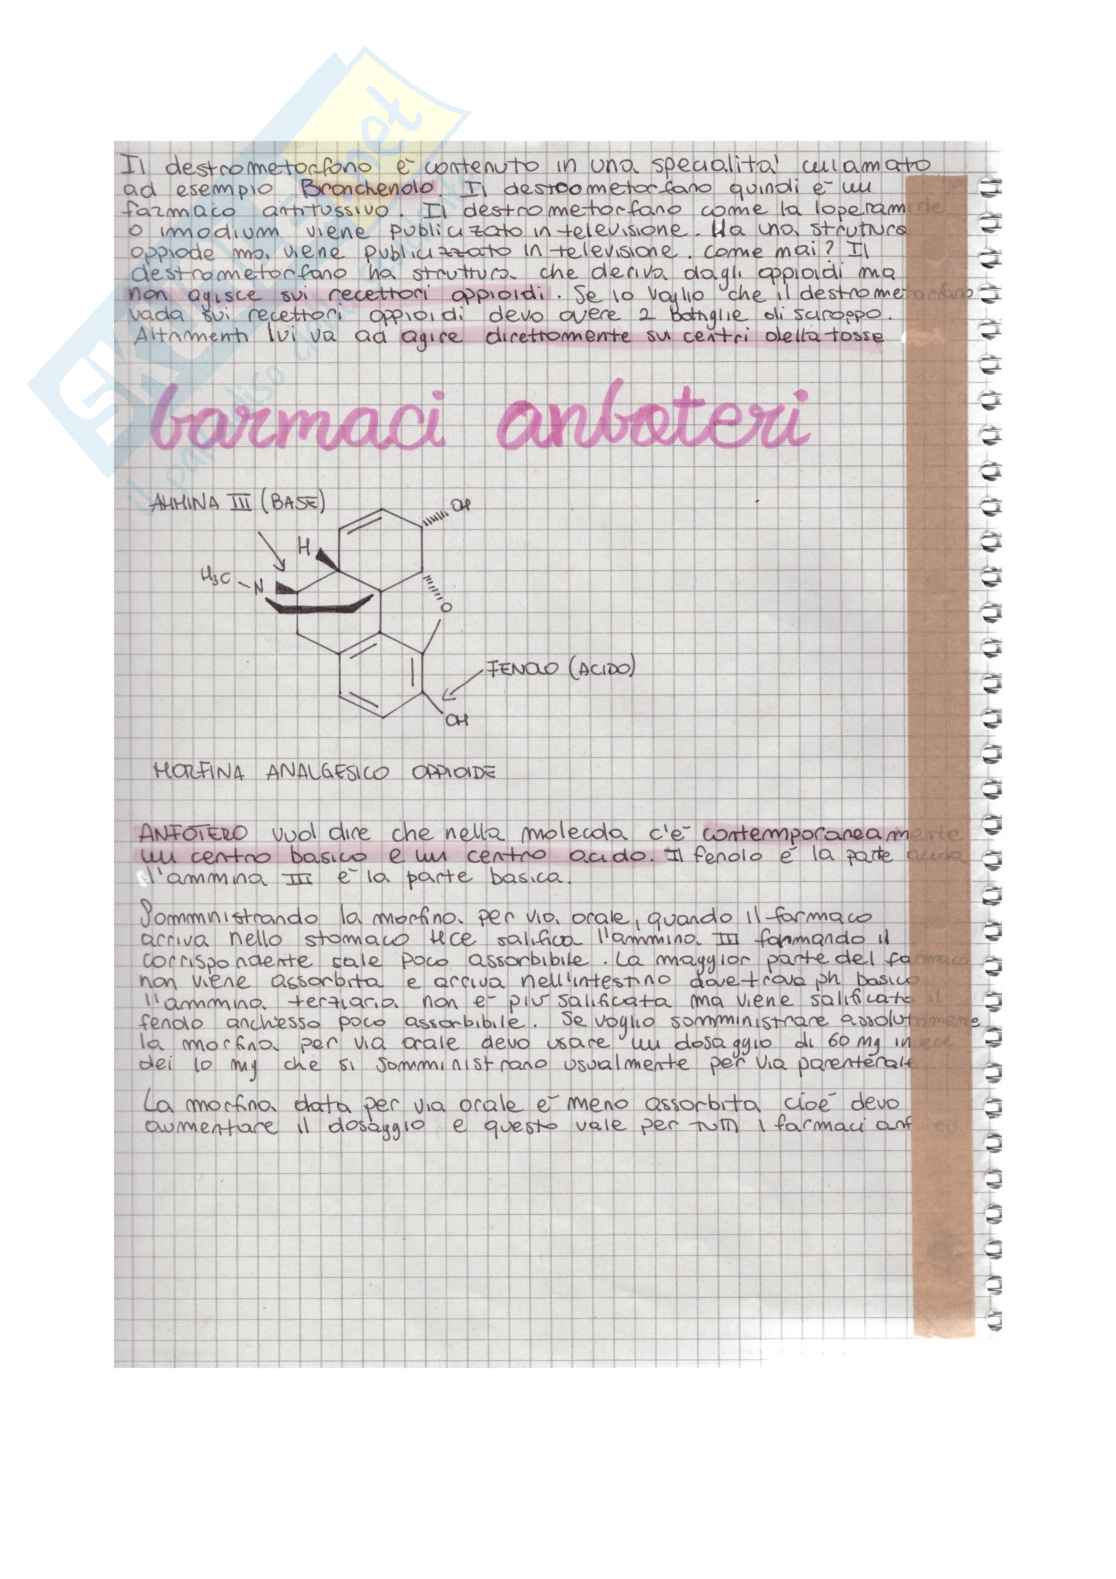 Il destrometorfano è contenuto in una specialità chiamato
ad esempio Bronchenolo. Il destrometorfano quindi è un
farmaco antitussivo. Il destrometorfano come la loperamide
o imodium viene publicizzato in televisione. Ha una struttura
oppiode ma viene publicizzato in televisione. come mai? Il
destrometorfano ha struttura che deriva dagli oppioidi ma
non agisce sui recettori oppioidi. Se io voglio che il destrometorfano
vada sui recettori oppioidi devo avere 2 bottiglie di sciroppo.
Altrimenti lui va ad agire direttamente sui centri della tosse
farmaci anfoteri
AMMINA III (BASE)
OH
H
H₃C-N
O
FENOLO (ACIDO)
OH
MORFINA ANALGESICO OPPIOIDE
ANFOTERO vuol dire che nella molecola c'è contemporaneamente
un centro basico e un centro acido. Il fenolo è la parte acida
l'ammina III è la parte basica.
Somministrando la morfina per via orale, quando il farmaco
arriva nello stomaco HCl salifica l'ammina III formando il
corrispondente sale poco assorbibile. La maggior parte del farmaco
non viene assorbita e arriva nell'intestino dove trova ph basico
l'ammina terziaria non è più salificata ma viene salificato il
fenolo anch'esso poco assorbibile. Se voglio somministrare assolutamente
la morfina per via orale devo usare un dosaggio di 60 mg invece
dei 10 mg che si somministrano usualmente per via parenterale
La morfina data per via orale è meno assorbita cioè devo
aumentare il dosaggio e questo vale per tutti i farmaci anfoteri